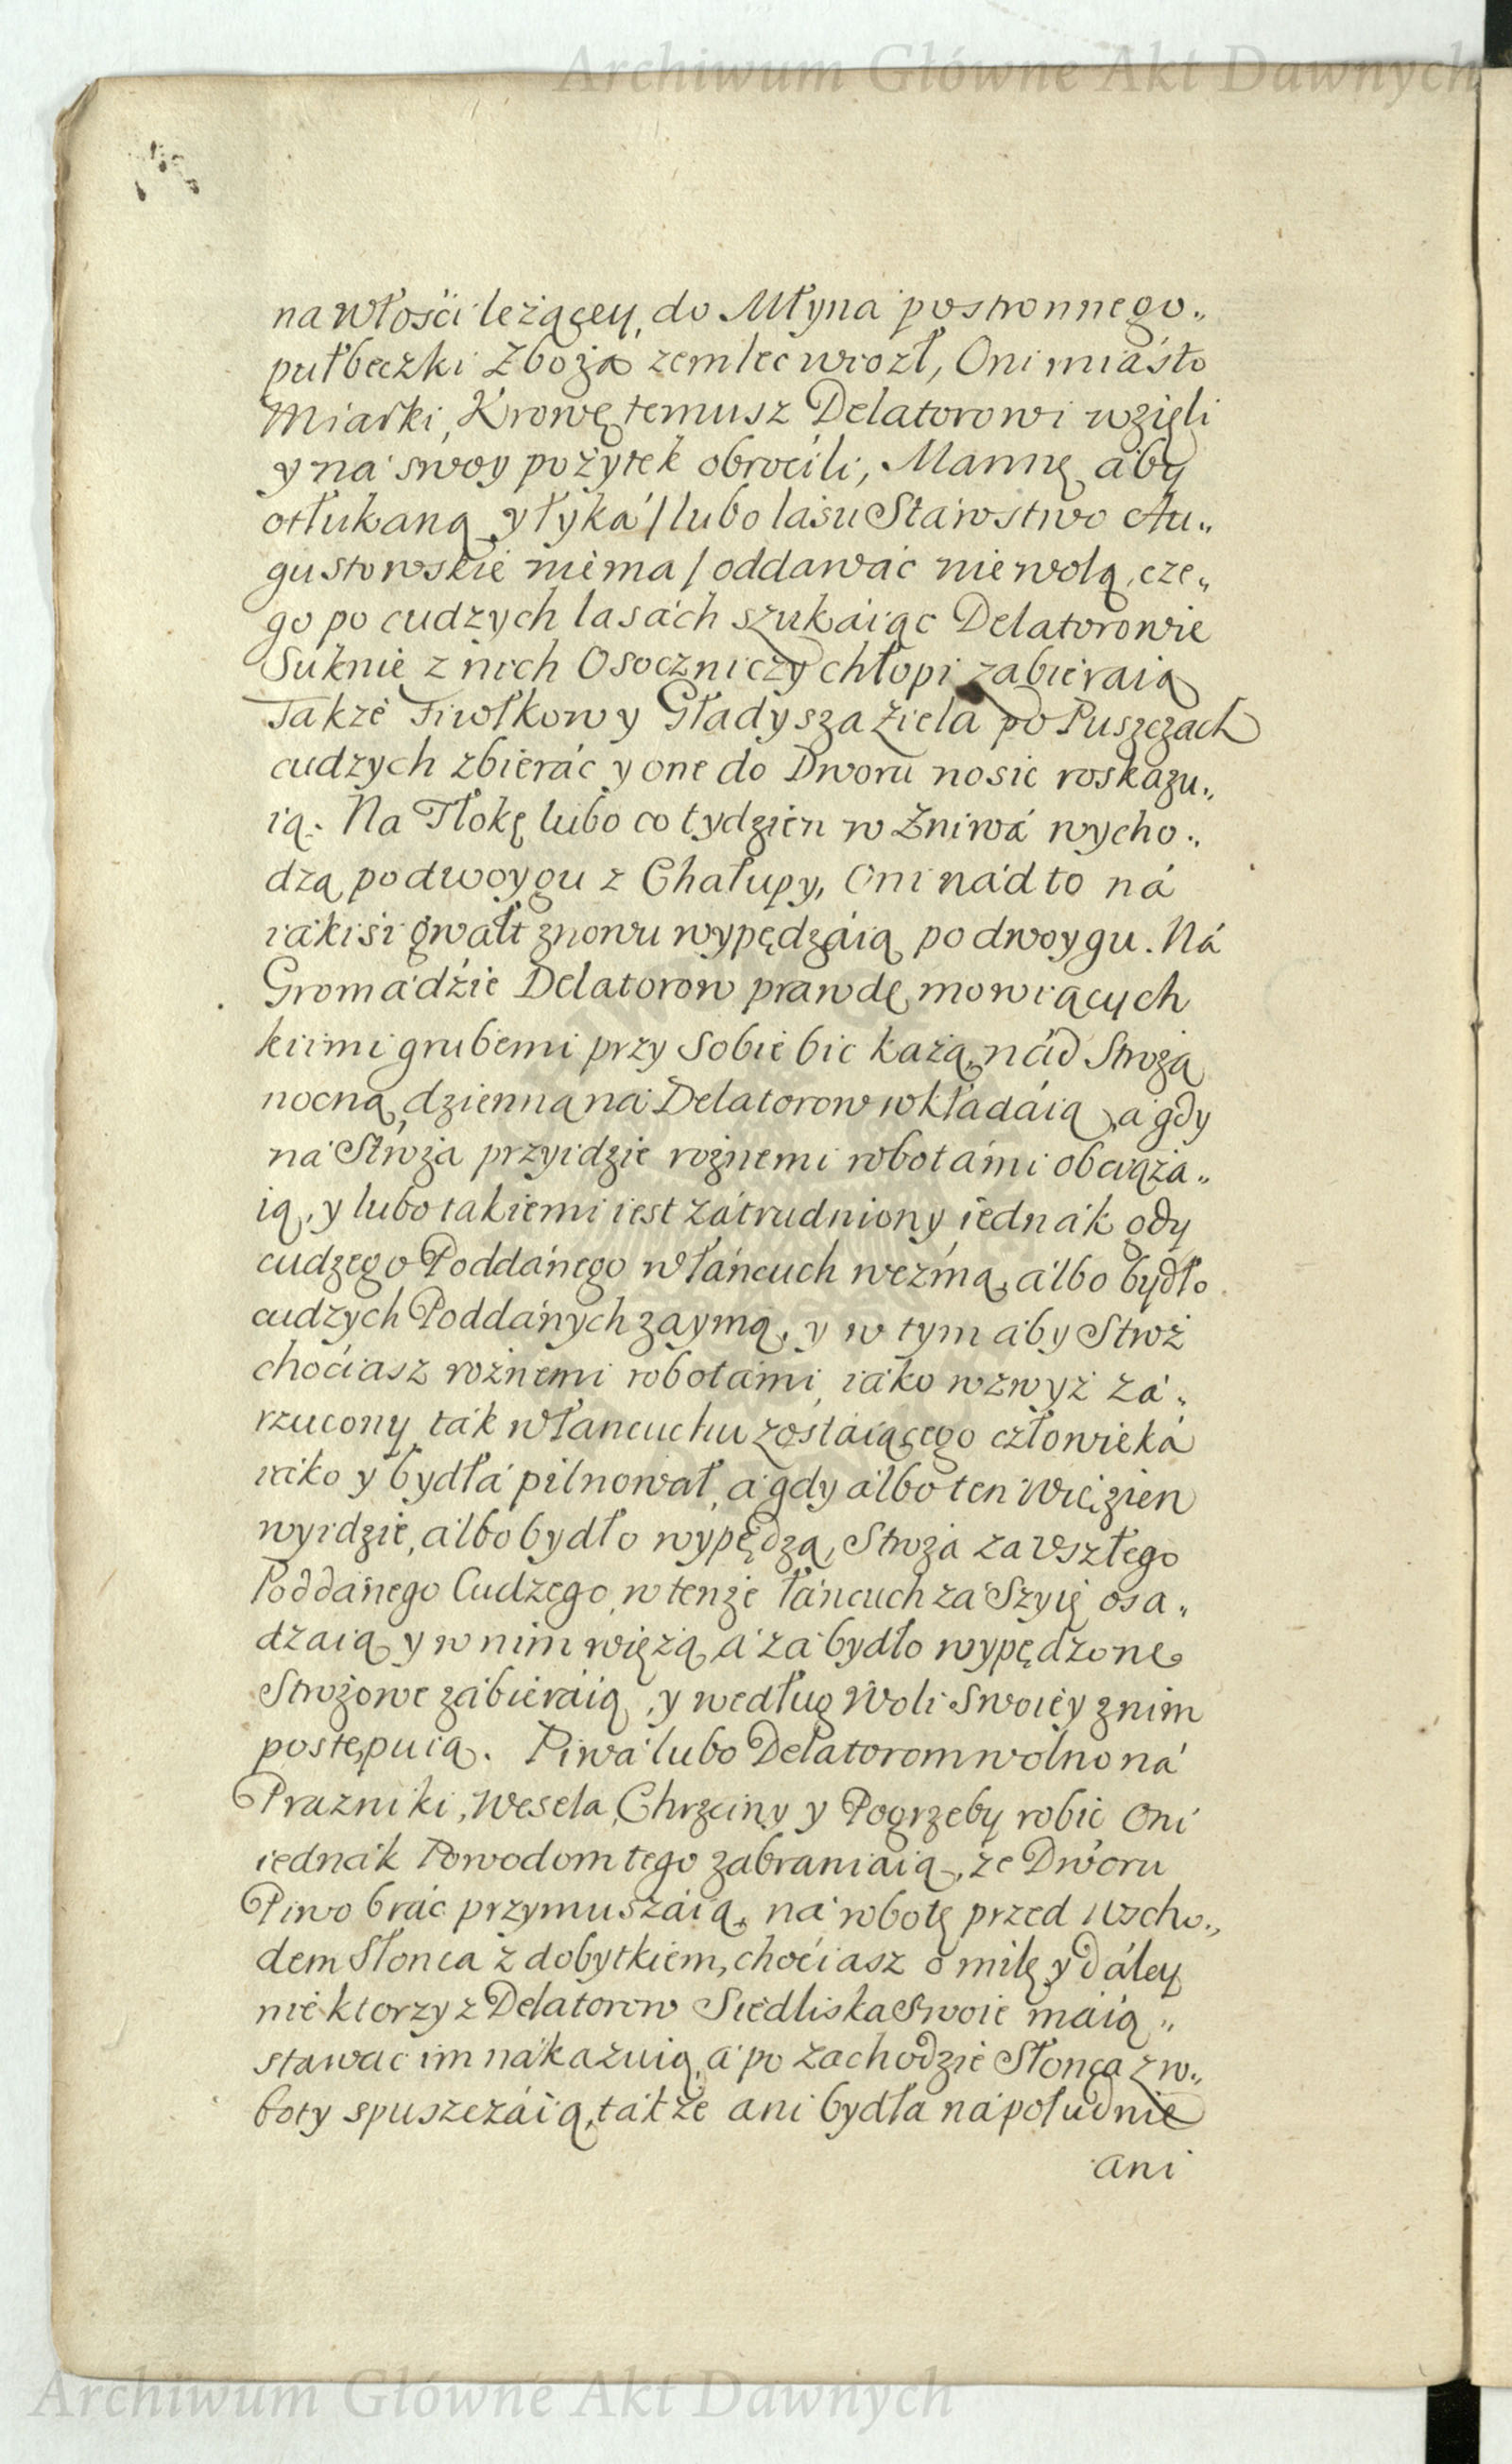 Archiwum Główne Akt Dawnych
na Włości leżącey, do Młyna postronnego„
pułbeczki Zboża zemlec wiozł, Oni miásto
Miarki, Krowę temusz Delatorowi wzięli
y ná swoy pożytek obrocili, Mannę áby
otłukaną y łyká / lubo lasu Stárostwo Au„
gustowskie niema / oddawáć niewolą, cze„
go po cudzych lasách szukáiąc Delatorowie
Suknie z nich Osoczniczy chłopi zabieraią
Także Fiołkow y Gładysza Ziela po Puszczach
cudzych zbieráć y one do Dworu nosić roskazu„
ią. Na Tłokę lubo co tydzień w Żniwá wycho„
dzą po dwoygu z Chałupy, Oni nádto ná
iákisi gwałt znowu wypędzáią po dwoygu. Ná
Gromádźie Delatorow prawdę mowiących
kiimi grubemi przy Sobie bić każą, nád Strożą
nocną, dzienną ná Delatorow wkłádáią, a gdy
ná Stroża przyidzie rożnemi robotámi obciąża„
ią, y lubo takiemi iest zátrudniony iednák gdy
cudzego Poddánego w łáncuch wezmą, álbo bydło
cudzych Poddánych zaymą, y w tym áby Stroż
choćiasz rożnemi robotámi, iáko wzwyż zá„
rzucony ták w łancuchu zostáiącego człowieká
iáko y bydłá pilnował, á gdy álbo ten Więzien
wyidzie, álbo bydło wypędzą, Stroża za uszłego
Poddánego Cudzego, w tenże łáncuch za Szyię osa„
dzaią y w nim więżą, á zá bydło wypędzone
Strożowe zábieráią, y według Woli Swoiey z nim
postępuią. Piwá lubo Delatorom wolno ná
Prazniki, Wesela, Chrzciny y Pogrzeby robić Oni
iednák Powodom tego zabraniaią, ze Dworu
Piwo bráć przymuszáią, ná robotę przed Wscho„
dem Słonca z dobytkiem, choćiasz o milę y dáley
niektorzy z Delatorow Siedliska Swoie máią„
stawać im nákazuią, á po zachodzie Słonca z ro„
boty spuszczáią, tákże ani bydła ná południe
ani
Archiwum Główne Akt Dawnych